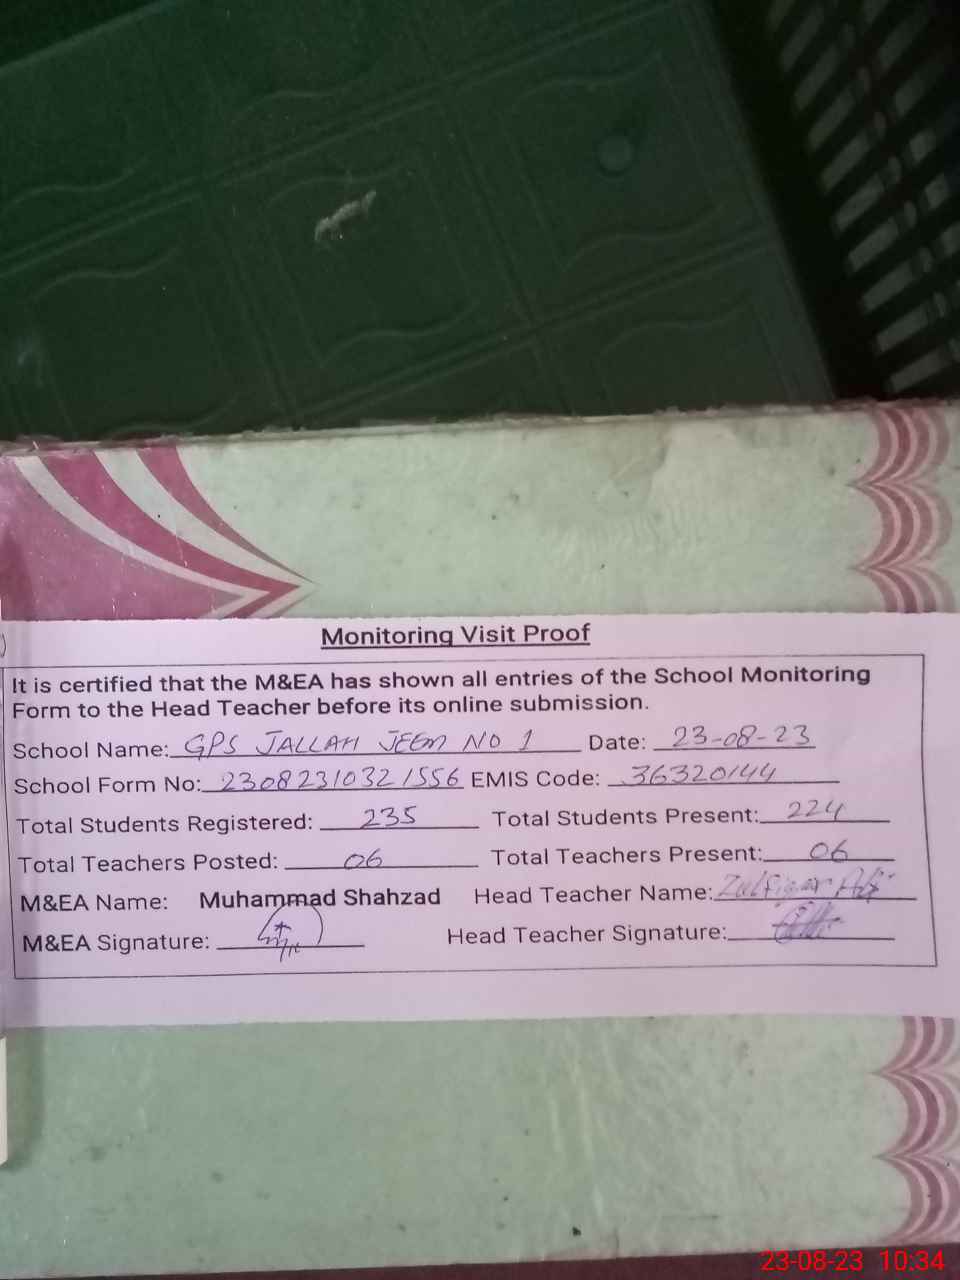 Monitoring Visit Proof
It is certified that the M&EA has shown all entries of the School Monitoring
Form to the Head Teacher before its online submission.
School Name: GPS JALLAH JEEM NO 1 Date: 23-08-23
School Form No: 23082310321556 EMIS Code: 36320144
Total Students Registered: 235 Total Students Present: 224
Total Teachers Posted: 06 Total Teachers Present: 06
M&EA Name: Muhammad Shahzad Head Teacher Name: Zulfiqar Ali
M&EA Signature: Head Teacher Signature:
23-08-23 10:34